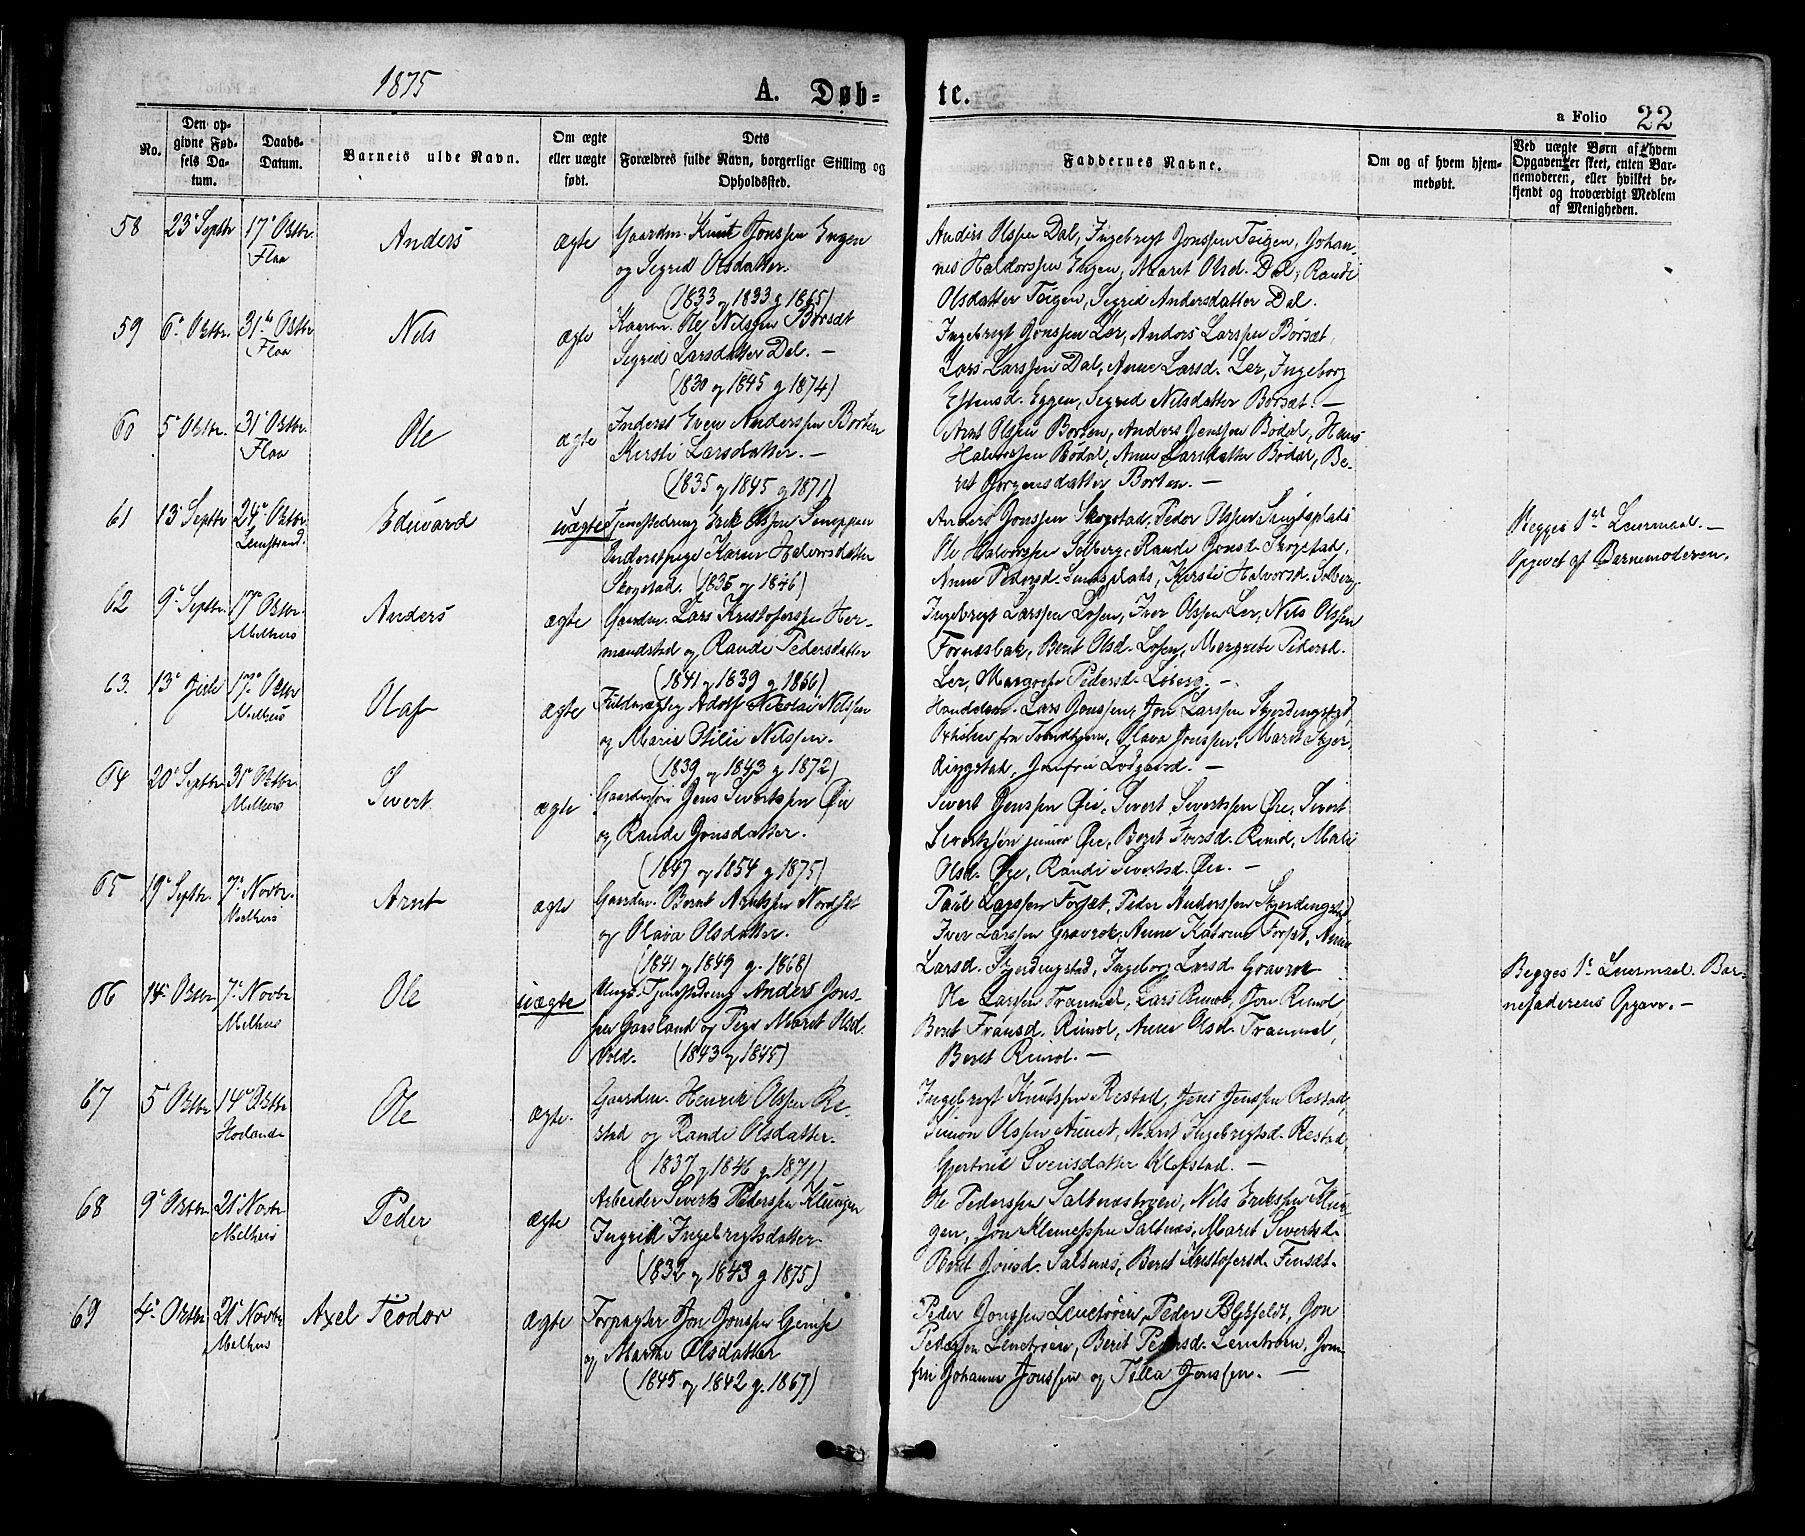 1875
A. Døb-
te.
a Folio 22
No.
Den op-
givne Fød-
sels Da-
tum.
Daabs-
Datum.
Barnets fulde Navn.
Om ægte
eller uægte
født.
Dets
Forældres fulde Navn, borgerlige Stilling og
Opholdssted.
Faddernes Navne.
Om og af hvem hjem-
medøbt.
Ved uægte Børn af hvem
Opgaven er skeet, enten Bar-
nemoderen, eller hvilket be-
kjendt og troværdigt Medlem
af Menigheden.
58 23 Septbr 17 Oktbr.
Flaa
Anders
ægte
Gaardm. Knut Jonssen Engen
og Sigrid Olsdatter.
(1833 og 1833 g 1865)
Anders Olssen Dal, Ingebrigt Jonssen Teigen, Johan-
nes Haldorssen Engen, Maret Olsd. Dal, Randi
Olsdatter Teigen, Sigrid Andersdatter Dal.
59 6 Oktbr. 31te Oktbr
Flaa
Nils
ægte
Ole Nilssen Børsæt
Sigrid Larsdatter Dal. —
(1830 og 1845 g 1874)
Ingebrigt Jonssen Ler, Anders Larssen Børsæt,
Lars Larssen Dal, Anne Larsd. Ler, Ingeborg
Estensd. Eggen, Sigrid Nilsdatter Børsæt. —
60 5 Oktbr. 31 Oktbr.
Flaa
Ole
ægte
Inderst Even Anderssen Borten
Kirsti Larsdatter. —
(1835 og 1845 g 1871)
Arnt Olssen Borten, Anders Jenssen Bødal, Hans
Halvorssen Bødal, Anne Larsdatter Bødal, Be-
ret Jørgensdatter Borten. —
61 13 Septbr 24 Oktbr.
Leinstrand.
Edevard
uægte
Tjenestedreng Erik Olssen
Inderstpige Karen Halvorsdatter
Skogstad. (1835 og 1846)
Anders Jonssen Skogstad, Peder Olssen
Ole Halvorssen Solberg, Randi Jonsd. Skogstad,
Anne Pedersd. Kirsti Halvorsd. Solberg
Begges 1st Leiermaal. —
Opgivet af Barnemoderen.
62 9 Septbr. 17 Oktbr
Melhus
Anders
ægte
Gaardm. Lars Kristoferssen Her-
mandstad og Randi Pedersdatter
(1841 og 1839 g 1866)
Ingebrigt Larssen Losen, Iver Olssen Ler, Nils Olssen
Fornesbak, Berit Olsd. Losen, Margrete Pedersd.
Ler, Margrete Pedersd. Løberg. —
63. 13 Juli 17 Oktbr
Melhus
Olaf
ægte
Fuldmægtig Adolf Nikolai Nilssen
og Marie Otilie Nilssen.
(1839 og 1843 g 1872)
Handelsm. Lars Jonssen, Jon Larssen Skjerdingstad,
fra Trondhjem, Olava Jonssen, Maret Skjer-
dingstad, Jomfru Lødgaard. —
64 20 Septbr 31 Oktbr
Melhus
Sivert
ægte
Jens Sivertssen Øie
og Randi Jonsdatter.
(1847 og 1854 g 1875)
Sivert Jenssen Øie, Sivert Sivertssen Øie, Sivert
Sivertssen junior Øie, Beret Iversd. Rimol, Mali
Olsd. Øie, Randi Sivertsd. Øie. —
65 19 Septbr. 7 Novbr
Melhus
Arnt
ægte
Gaardm. Bernt Arntssen Nordset
og Olava Olsdatter.
(1841 og 1849 g. 1868)
Paul Larssen Forset, Peder Anderssen Skjerdingstad
Iver Larssen Gravrok, Anne Katrine Forset, Anne
Larsd. Skjerdingstad, Ingeborg Larsd. Gravrok
66 14 Oktbr 7 Novbr
Melhus
Ole
uægte
Ungk. Tjenestedreng Anders Jons-
sen Gaasland og Pige Maret Olsd.
Vold. (1843 og 1845)
Ole Larssen Trammel, Lars Rimol, Jon Rimol
Beret Fransd. Rimol, Anne Olsd. Trammel,
Beret Rimol. —
Begges 1st Leiermaal. Bar-
nefaderens Opgave. —
67 5 Oktbr 14 Oktbr
Hølande
Ole
ægte.
Gaardm. Henrik Olssen Re-
stad og Randi Olsdatter.
(1837 og 1846 g. 1871)
Ingebrigt Knutssen Restad, Jens Jenssen Restad,
Simon Olssen Aunet, Marit Ingebrigtsd. Restad,
Gjertrud Svensdatter Klefstad. —
68 9 Oktbr. 21 Novbr
Melhus
Peder
ægte
Arbeider Sivert Pederssen Klungen
Ingrid Ingebrigtsdatter
(1832 og 1843 g 1875)
Ole Pederssen Saltnæstrøen, Nils Erikssen Klun-
gen, Jon Klemetssen Saltnæs, Maret Sivertsd.
Berit Jonsd. Saltnæs, Beret Kristofersd. Finsæt.
69 4 Oktbr 21 Novbr
Melhus
Axel Teodor
ægte
Forpagter Jon Jonssen Gimse
og Marthe Olsdatter
(1845 og 1842 g. 1867)
Peder Jonssen Leinstrøien, Peder Blekfeldt, Jon
Pedersen Leinstrøien, Berit Pedersd. Leinstrøien, Jom-
fru Johanne Jonssen og Tella Jonssen. —